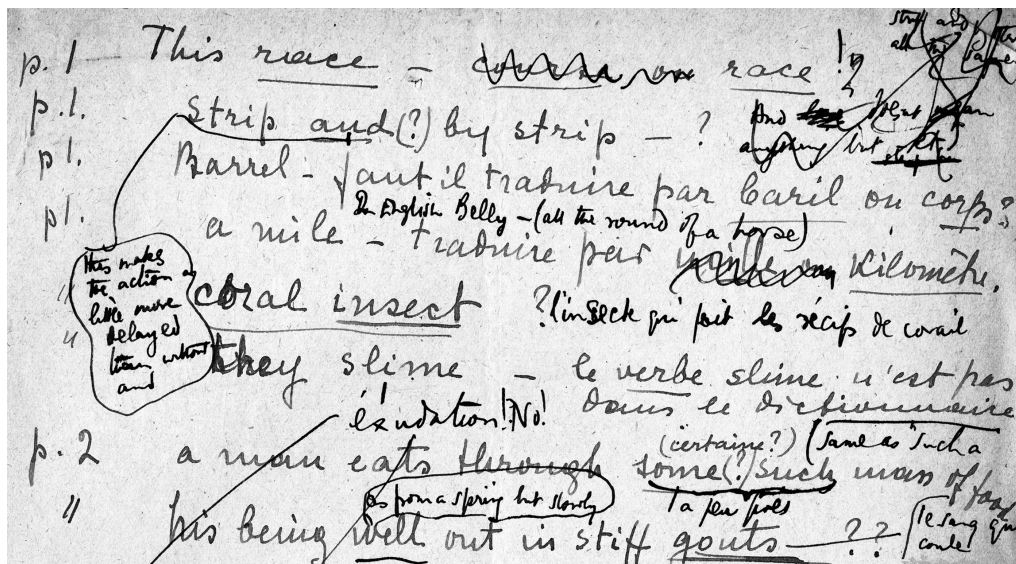 p. 1 This race – course or race !?
p. 1. Strip and (?) by strip – ?
And
anything but
p 1. Barrel – faut il traduire par baril ou corps?
In English Belly – (all the round of a horse)
p 1. a mile – traduire par mille ou Kilomètre.
this makes
the action a
little more
delayed
than without
and
" coral insect ? l'insecte qui fait les récifs de corail
" they slime – le verbe slime n'est pas
dans le dictionnaire
éxudation! No!
(certaine?) (same as "such a
p. 2 a man eats through some (?) such mass of food
as from a spring but slowly
à peu près
" his being well out in stiff gouts – ??
le sang qui
coule